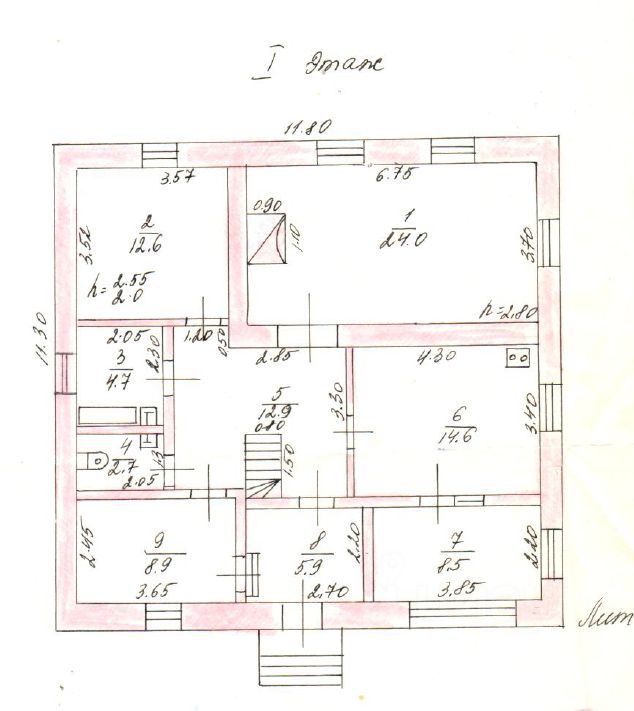 I этаж
11.80
3.57
6.75
0.90
1.10
1
24.0
3.70
h=2.80
3.52
2
12.6
h=2.55
2.0
11.30
2.05
2.30
3
4.7
1.20
0.50
2.85
4.30
5
12.9
3.30
6
14.6
3.40
0.80
1.50
4
2.7
1.3
2.05
2.45
9
8.9
3.65
8
5.9
2.20
2.70
7
8.5
3.85
2.20
Лист